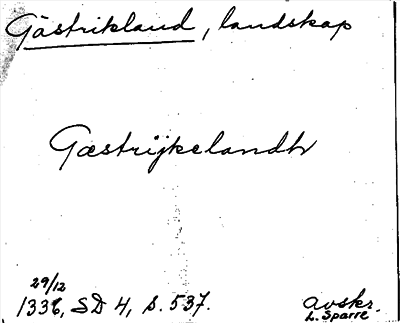 Gästrikland, landskap
Gæstrijkelandh
29/12
1336, SD 4, s. 537.
avskr.
L. Sparre